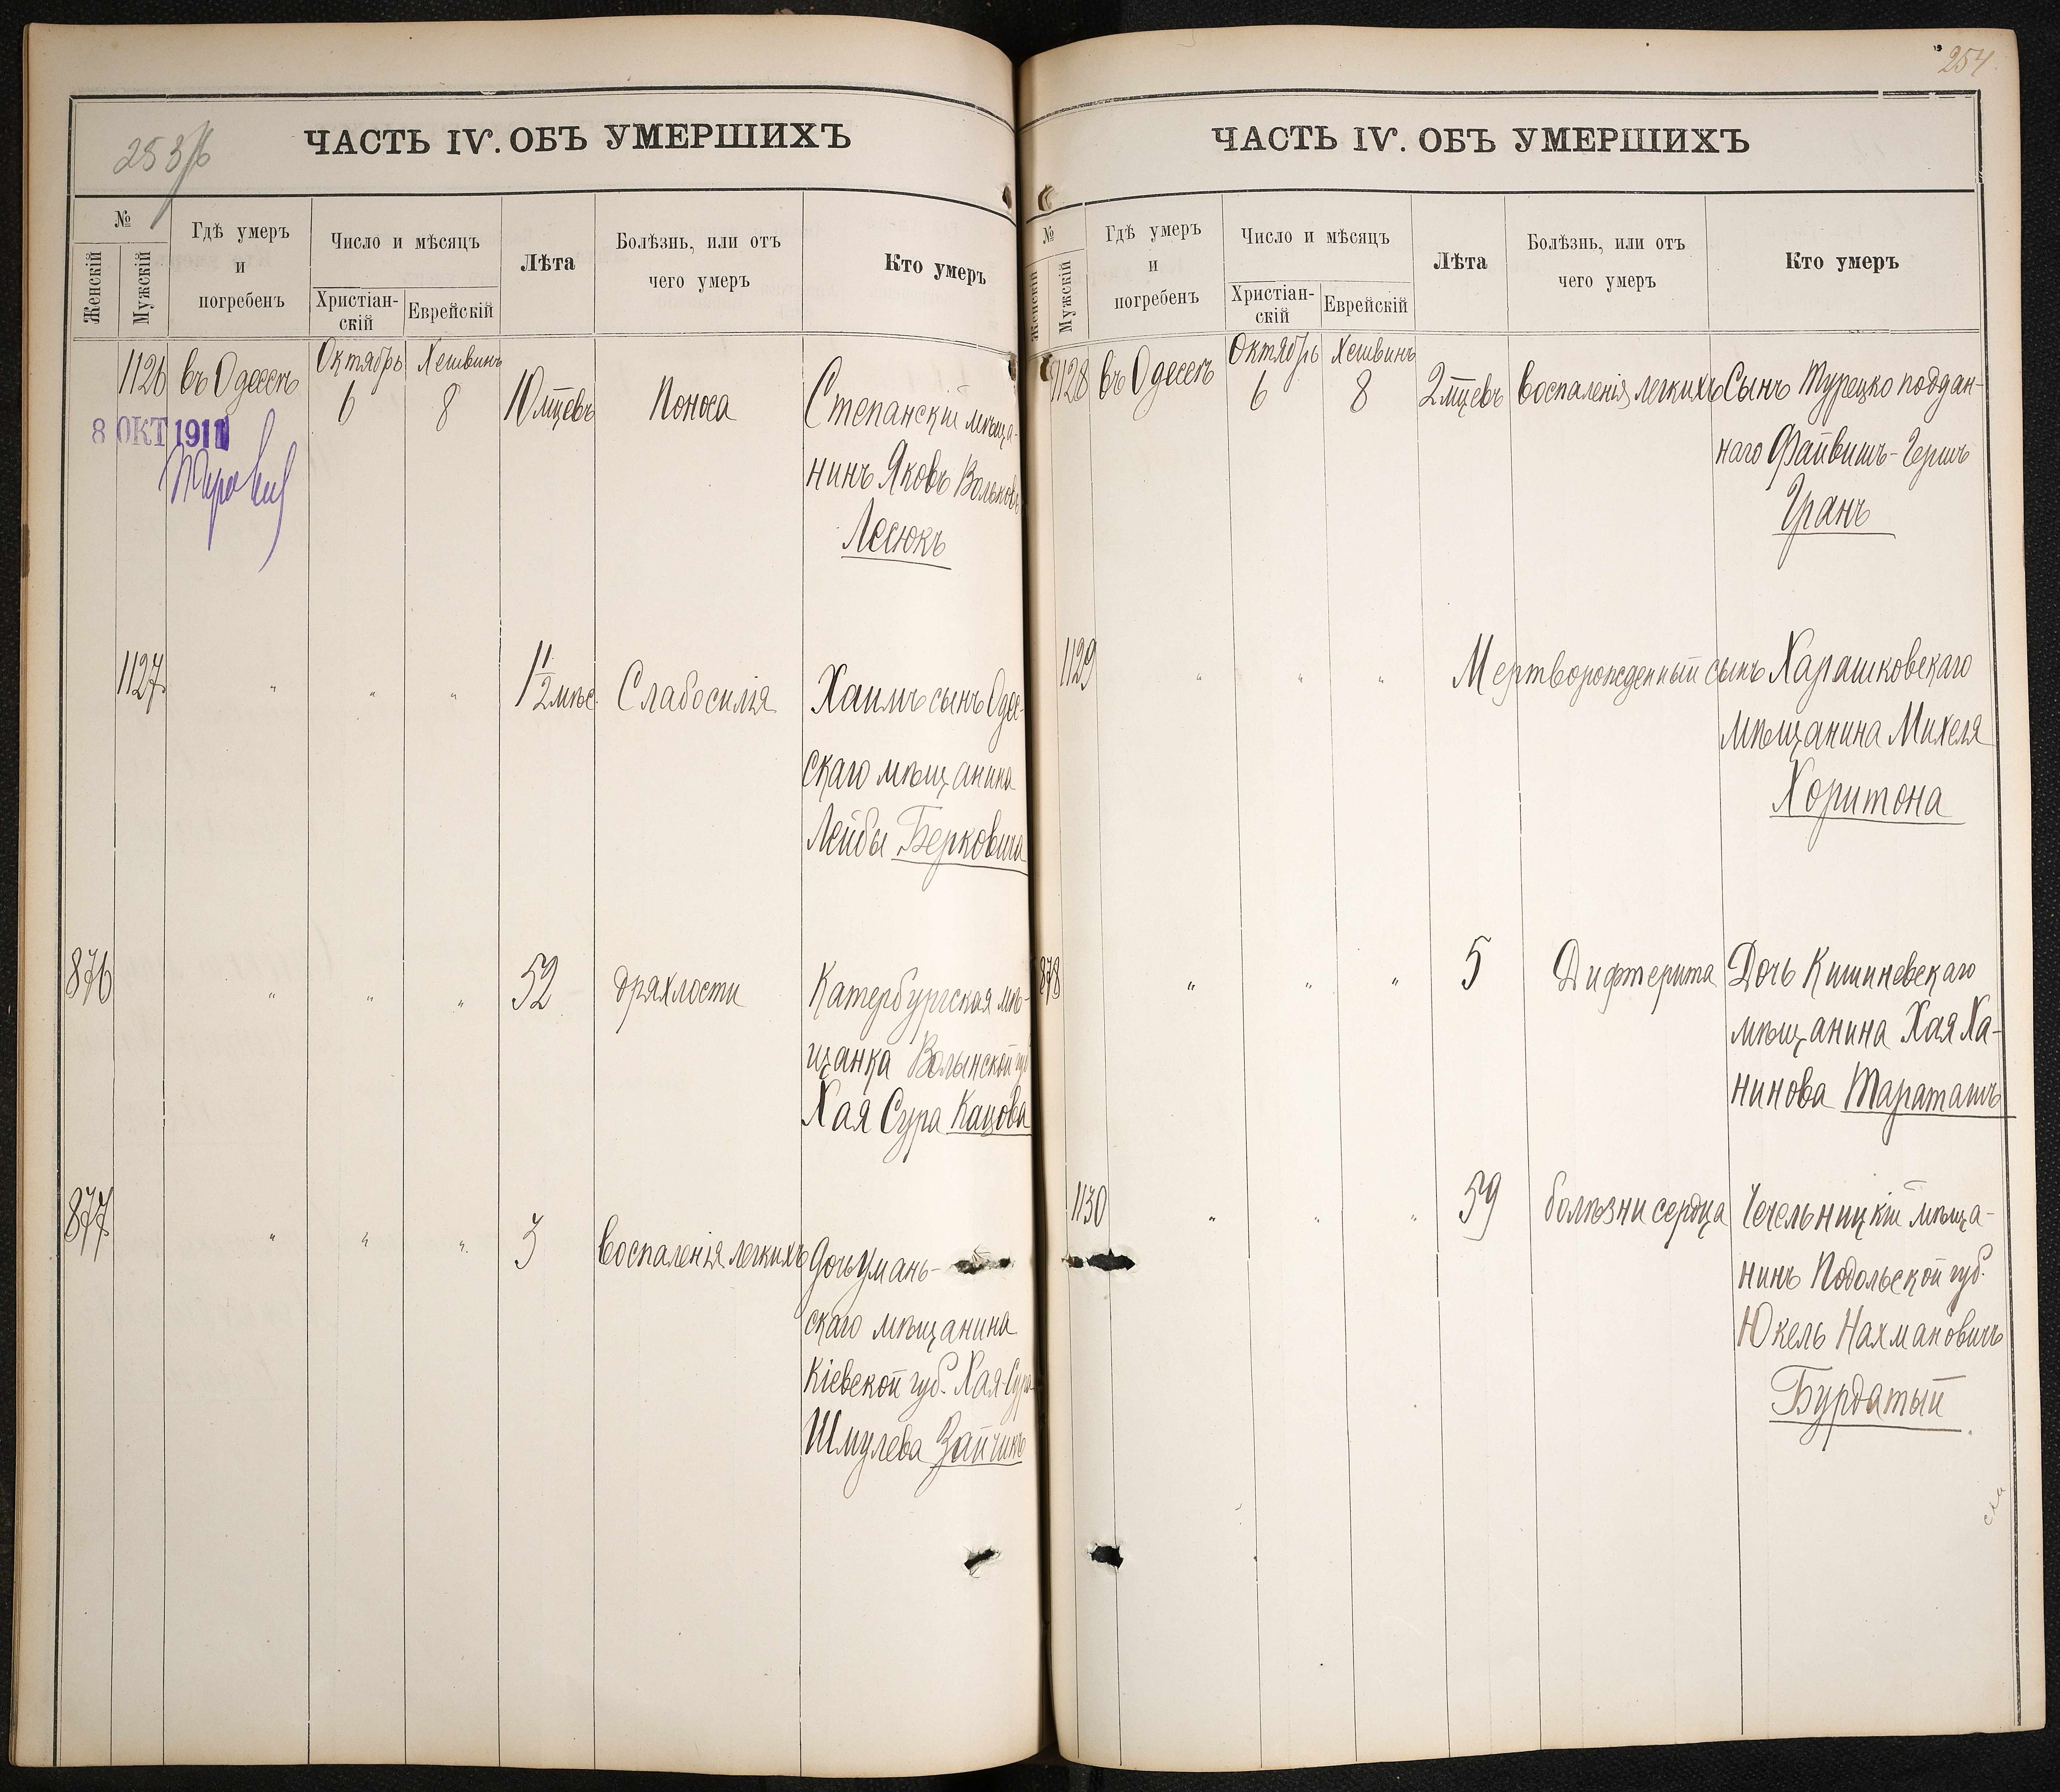 253 /б
ЧАСТЬ IV. ОБЪ УМЕРШИХЪ
№
Женскій
Мужскій
Гдѣ умеръ
и
погребенъ
Число и мѣсяцъ
Христіан-
скій
Еврейскій
Лѣта
Болѣзнь, или отъ
чего умеръ
Кто умеръ
1126 въ Одессѣ Октябрь 6 Хешвинъ 8 10 мцевъ Поноса Степанскій мѣща-
нинъ Яковъ Вольковъ
Лесюкъ
8 ОКТ 1911
1127 " " " 1 1/2 мѣс. Слабосилія Хаимъ сынъ Одес-
скаго мѣщанина
Лейбы Берковича
876 " " " 52 дряхлости Катербургская мѣ-
щанка Волынской губ
Хая Сура Кацова
877 " " " 3 воспаленія легкихъ Дочь Умань-
скаго мѣщанина
Кіевской губ. Хая-Сура
Шмулева Зайчикъ
254
ЧАСТЬ IV. ОБЪ УМЕРШИХЪ
№
Женскій
Мужскій
Гдѣ умеръ
и
погребенъ
Число и мѣсяцъ
Христіан-
скій
Еврейскій
Лѣта
Болѣзнь, или отъ
чего умеръ
Кто умеръ
1128 въ Одессѣ Октябрь 6 Хешвинъ 8 2 мцевъ воспаленія легкихъ Сынъ Турецко поддан-
наго Файвишъ-Гершъ
Гранъ
1129 " " " Мертворожденный сынъ Харашковскаго
мѣщанина Михеля
Хоритона
878 " " " 5 Дифтерита Дочь Кишиневскаго
мѣщанина Хая Ха-
нинова Тараташъ
1130 " " " 59 болѣзни сердца Чечельницкій мѣща-
нинъ Подольской губ.
Юкель Нахмановичъ
Бурдатый